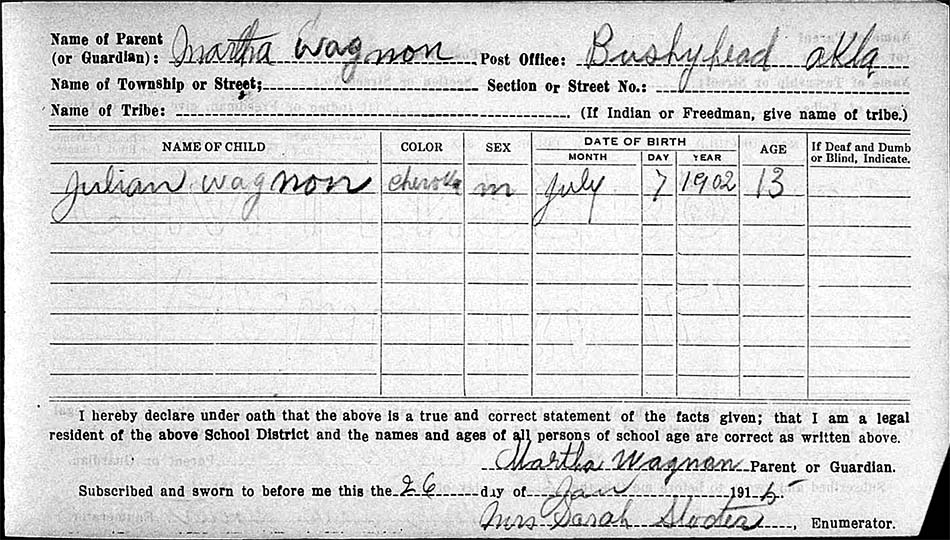 Name of Parent
(or Guardian): Martha Wagnon Post Office: Bushyhead Okla
Name of Township or Street; Section or Street No.:
Name of Tribe: (If Indian or Freedman, give name of tribe.)
NAME OF CHILD COLOR SEX DATE OF BIRTH AGE If Deaf and Dumb
MONTH DAY YEAR or Blind, Indicate.
Julian Wagnon m July 7 1902 13
I hereby declare under oath that the above is a true and correct statement of the facts given; that I am a legal
resident of the above School District and the names and ages of all persons of school age are correct as written above.
Martha Wagnon Parent or Guardian.
Subscribed and sworn to before me this the 26 day of Jan 191
Mrs Sarah , Enumerator.